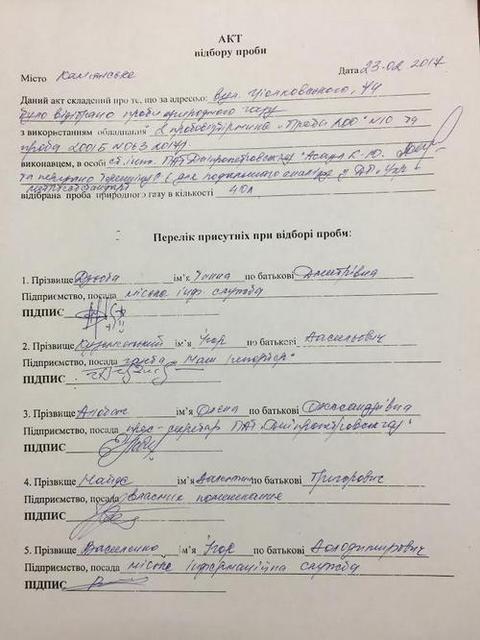 АКТ
відбору проби
Місто Кам'янське Дата 23.02 2017
Даний акт складений про те, що за адресою: вул. Ціолковського, 44
було відібрано проби природного газу
з використанням обладнання 2 пробовідбірника "Проба 200" N10 та
проба 200 Б N063
виконавцем, в особі ст. інж. ПАТ Дніпропетровськгаз К. Ю.
та передано для подальшого аналізу у ДП "Укр
метртестстандарт
відібрана проба природного газу в кількості 4 Ол
Перелік присутніх при відборі проби:
1. Прізвище Дзюба ім'я Інна по батькові Дмитрівна
Підприємство, посада міська інф. служба
ПІДПИС
2. Прізвище ім'я Ігор по батькові Васильович
Підприємство, посада газета "Наш репортер"
ПІДПИС
3. Прізвище ім'я Олена по батькові Олександрівна
Підприємство, посада прес-секретар ПАТ "Дніпропетровськгаз"
ПІДПИС
4. Прізвкще Найда ім'я Валентин по батькові Григорович
Підприємство, посада власник помешкання
ПІДПИС
5. Прізвище Василенко ім'я Ігор по батькові Володимирович
Підприємство, посада міська інформаційна служба
ПІДПИС